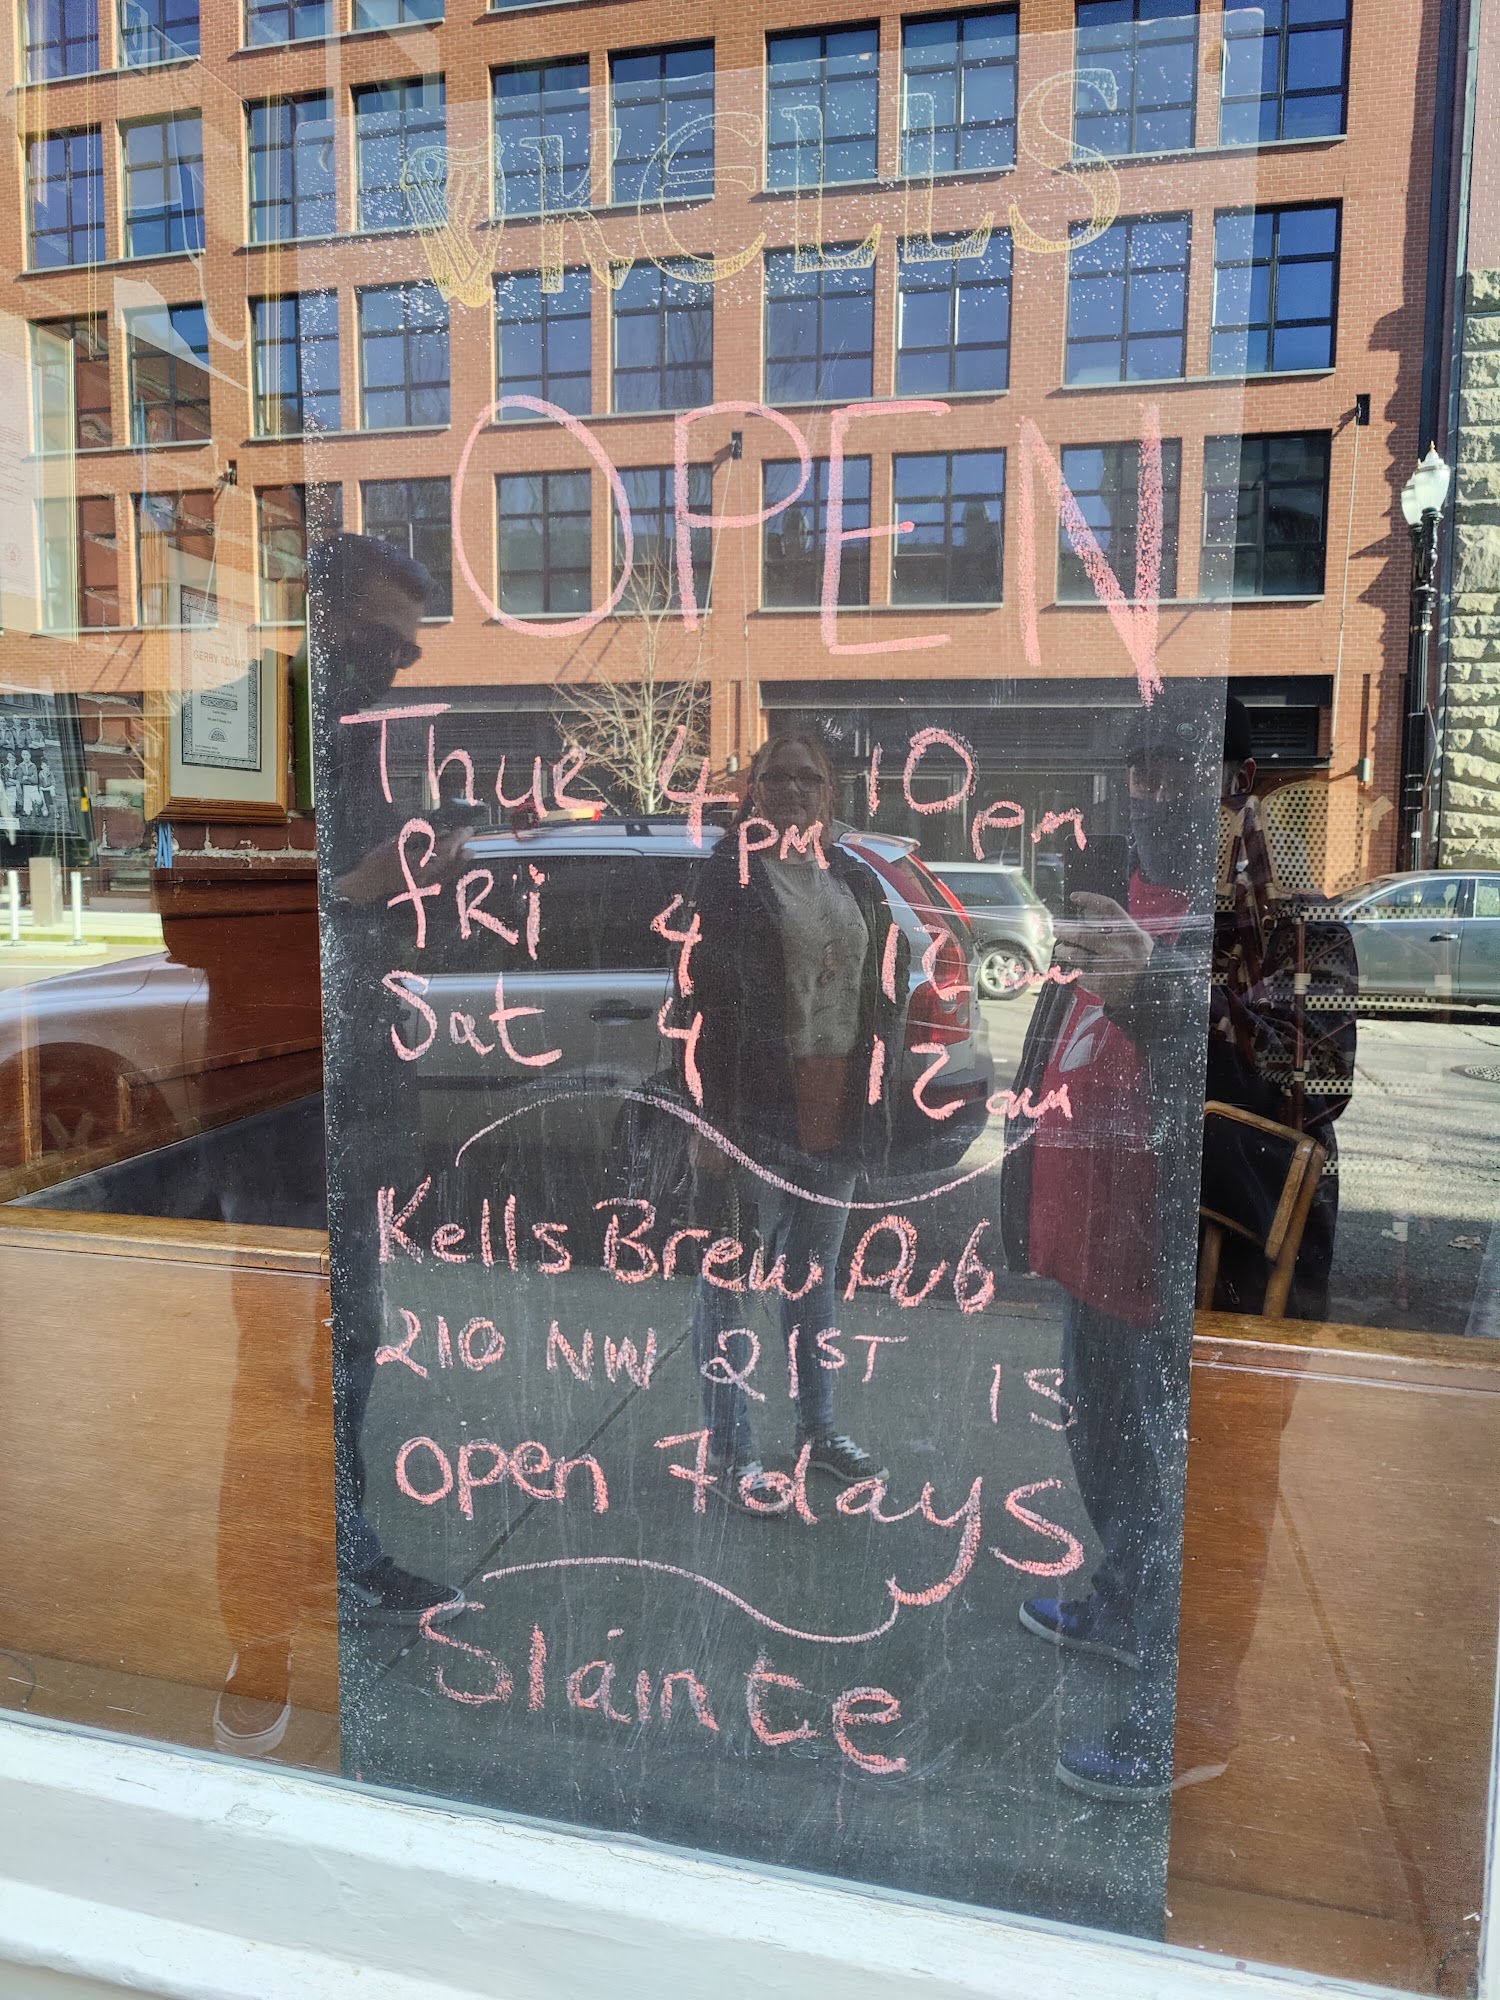 KELLS
OPEN
Thur 4pm 10pm
fRi 4 12am
Sat 4 12am
Kells Brew Pub
210 NW 21ST IS
Open 7 days
Sláinte
GERRY ADAMS